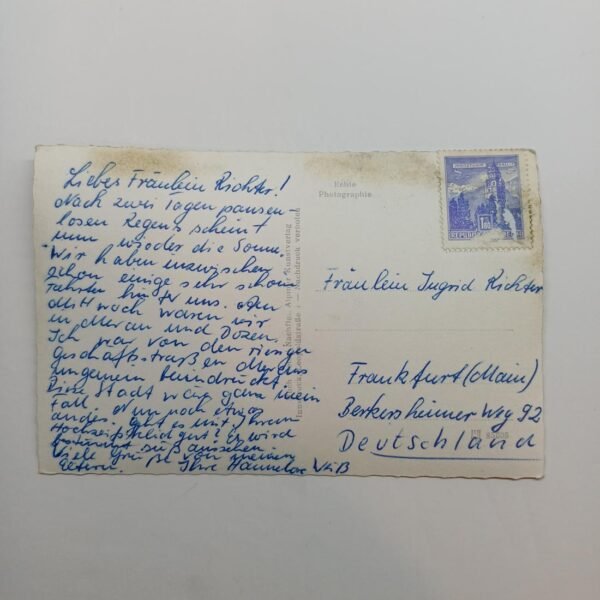 Liebes Fräulein Richter!
Nach zwei Tagen pausen-
losen Regens scheint
nun wieder die Sonne.
Wir haben inzwischen
schon einige sehr schöne
Fahrten hinter uns. Am
Mittwoch waren wir
in Meran und Bozen.
Ich war von den riesigen
Geschäftsstraßen Merans
ungemein beindruckt.
Diese Stadt war ganz mein
Fall. Nun noch etwas
anderes. Geht es mit Ihrem
Hochzeitskleid gut? Es wird
bestimmt süß aussehen.
Viele Grüße von meinen
Eltern. Ihre Hannelore Weiß
Echte
Photographie
Nachflg., Alpiner Kunstverlag
Innsbruck
Nachdruck verboten
1.00
REPUBLIK
Fräulein Ingrid Richter
Frankfurt (Main)
Berkersheimer Weg 92
Deutschland